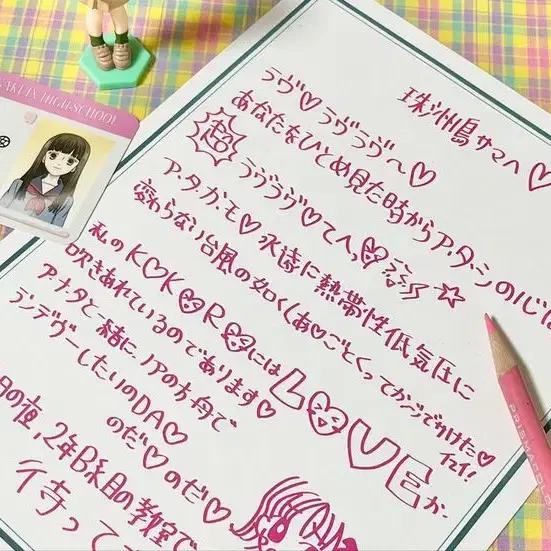 珠洲島サマへ♡
ラヴ♡ラヴラヴ〜♡
あなたをひとめ見た時からア・タ・シの心は
超ラヴラヴ♡てへ
ア・タ・カ・モ♡永遠に熱帯性低気圧に
変わらない台風の如く(あ♡ごとくってかごでかけた♡イェイ!
私のK♡K♡R♡にはLOVEが
吹きあれているのであります♡
アナタと一緒に、ノアの方舟で
ランデヴーしたいのDA♡
のだ♡のだ♡
日の夜,2年B組の教室で
待って
HIGH-SCHOOL